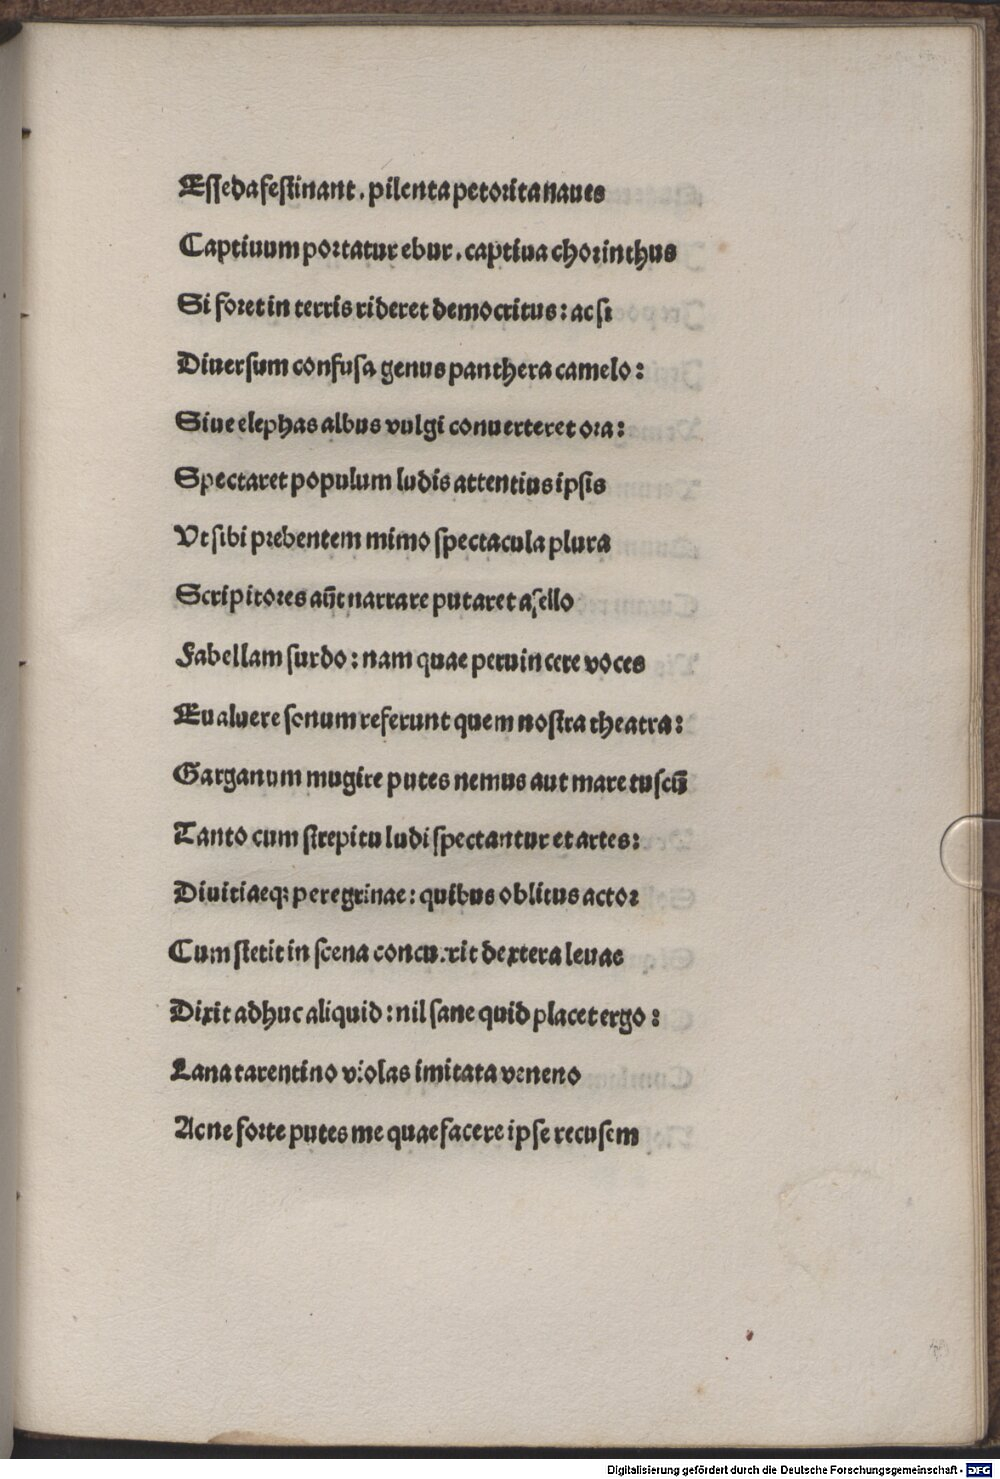 Eſſeda feſtinant. pilenta petorita naues
Captiuum portatur ebur. captiua chorinthus
Si foret in terris rideret democritus: ac ſi
Diuerſum confuſa genus panthera camelo:
Siue elephas albus vulgi conuerteret ora:
Spectaret populum ludis attentius ipſis
Vt ſibi prebentem mimo ſpectacula plura
Scripitores aūt narrare putaret aſello
Fabellam ſurdo: nam quae peruincere voces
Eualuere ſonum referunt quem noſtra theatra:
Garganum mugire putes nemus aut mare tuſcū
Tanto cum ſtrepitu ludi ſpectantur et artes:
Diuitiaeqꝫ peregrinae: quibus oblitus actor
Cum ſtetit in ſcena concurrit dextera leuae
Dixit adhuc aliquid: nil ſane quid placet ergo:
Lana tarentino violas imitata veneno
Ac ne forte putes me quae facere ipſe recuſem
Digitalisierung gefördert durch die Deutsche Forschungsgemeinschaft - DFG